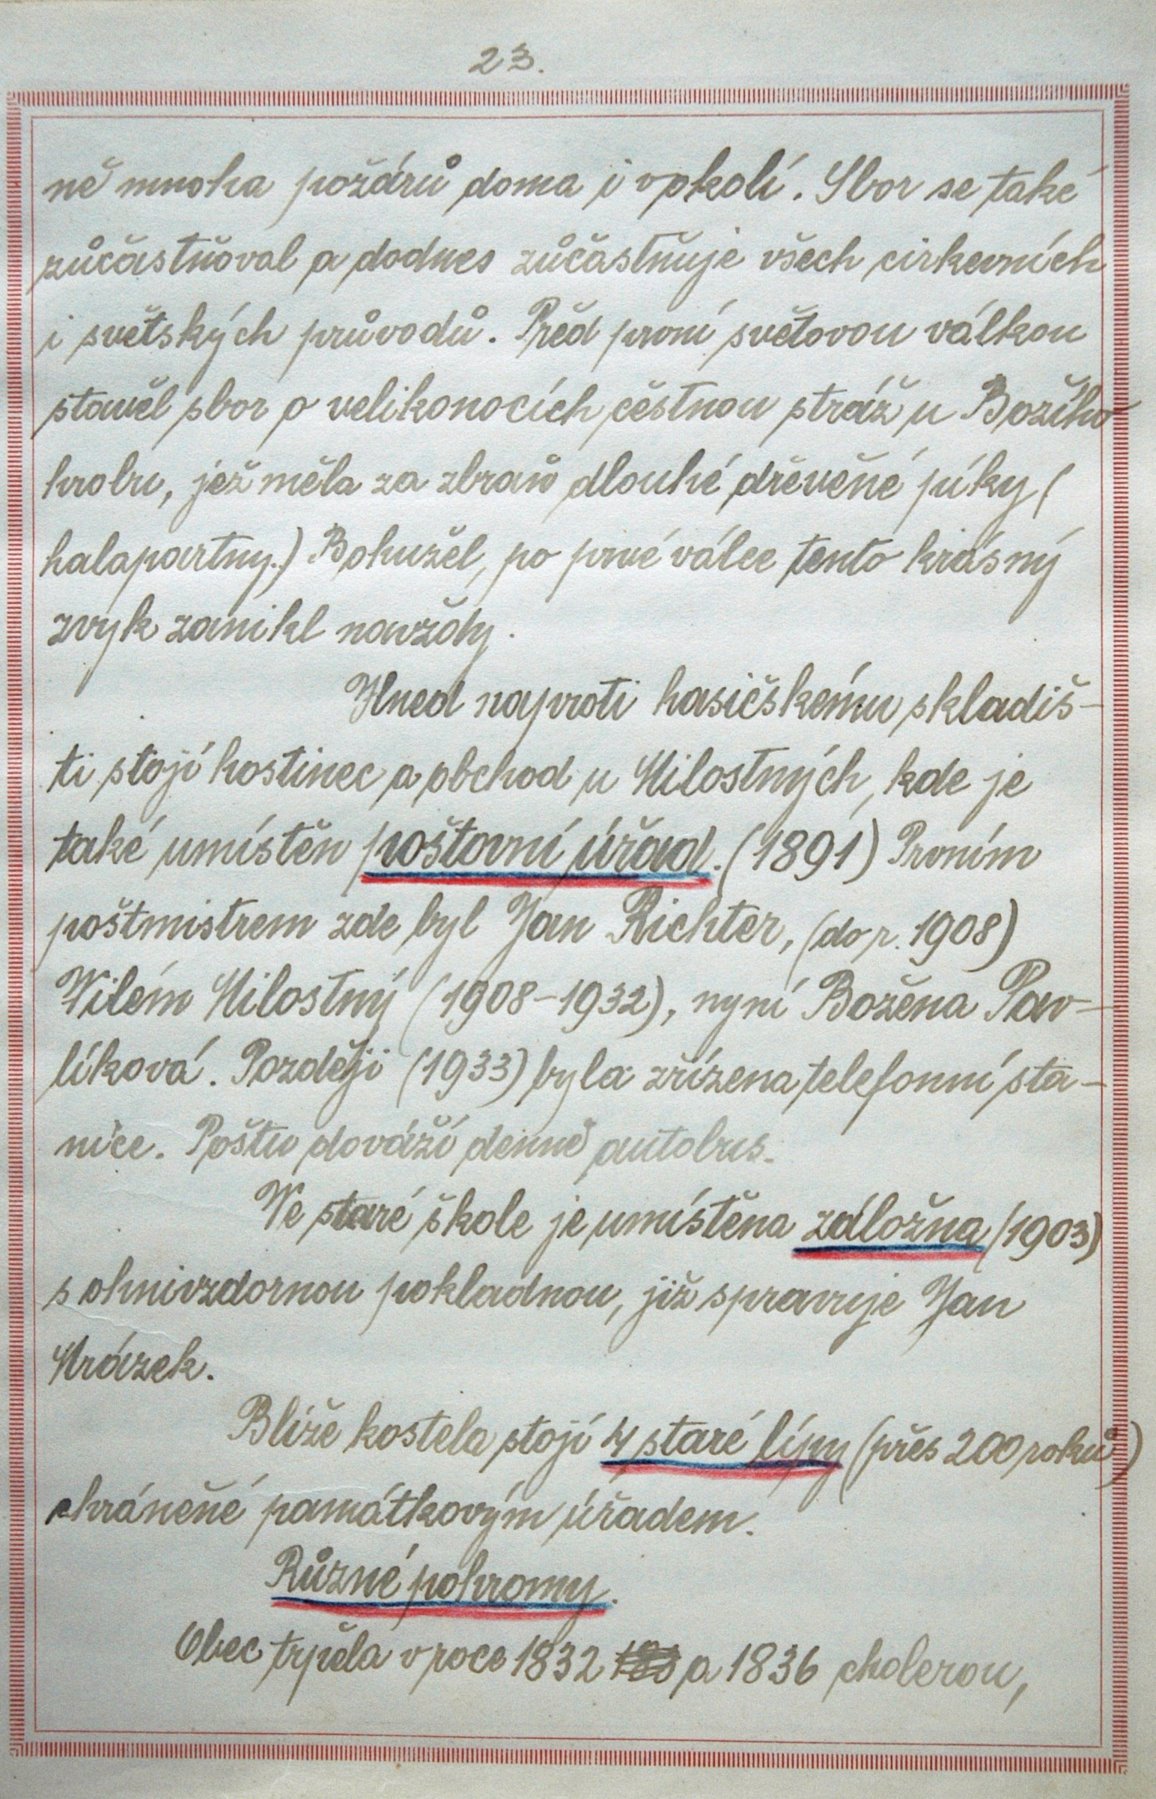 23.
ně mnoha požárů doma i v okolí. Sbor se také
zůčastňoval a dodnes zůčastňuje všech cirkevních
i světských průvodů. Před první světovou válkou
stavěl sbor o velikonocích čestnou stráž u Božího
hrobu, jež měla za zbraň dlouhé dřevěné píky (
halapartny.) Bohužel, po prvé válce tento krásný
zvyk zanikl navždy.
Hned naproti hasičskému skladiš-
ti stojí hostinec a obchod u Milostných, kde je
také umístěn poštovní úřad. (1891) Prvním
poštmistrem zde byl Jan Richter, (do r. 1908)
Vilém Milostný (1908-1932), nyní Božena Pav-
líková. Později (1933) byla zřízena telefonní sta-
nice. Poštu dováží denně autobus.
Ve staré škole je umístěna záložna (1903)
s ohnivzdornou pokladnou, již spravuje Jan
Mrázek.
Blíže kostela stojí 4 staré lípy (přes 200 roků)
chráněné památkovým úřadem.
Různé pohromy.
Obec trpěla v roce 1832 a 1836 cholerou,